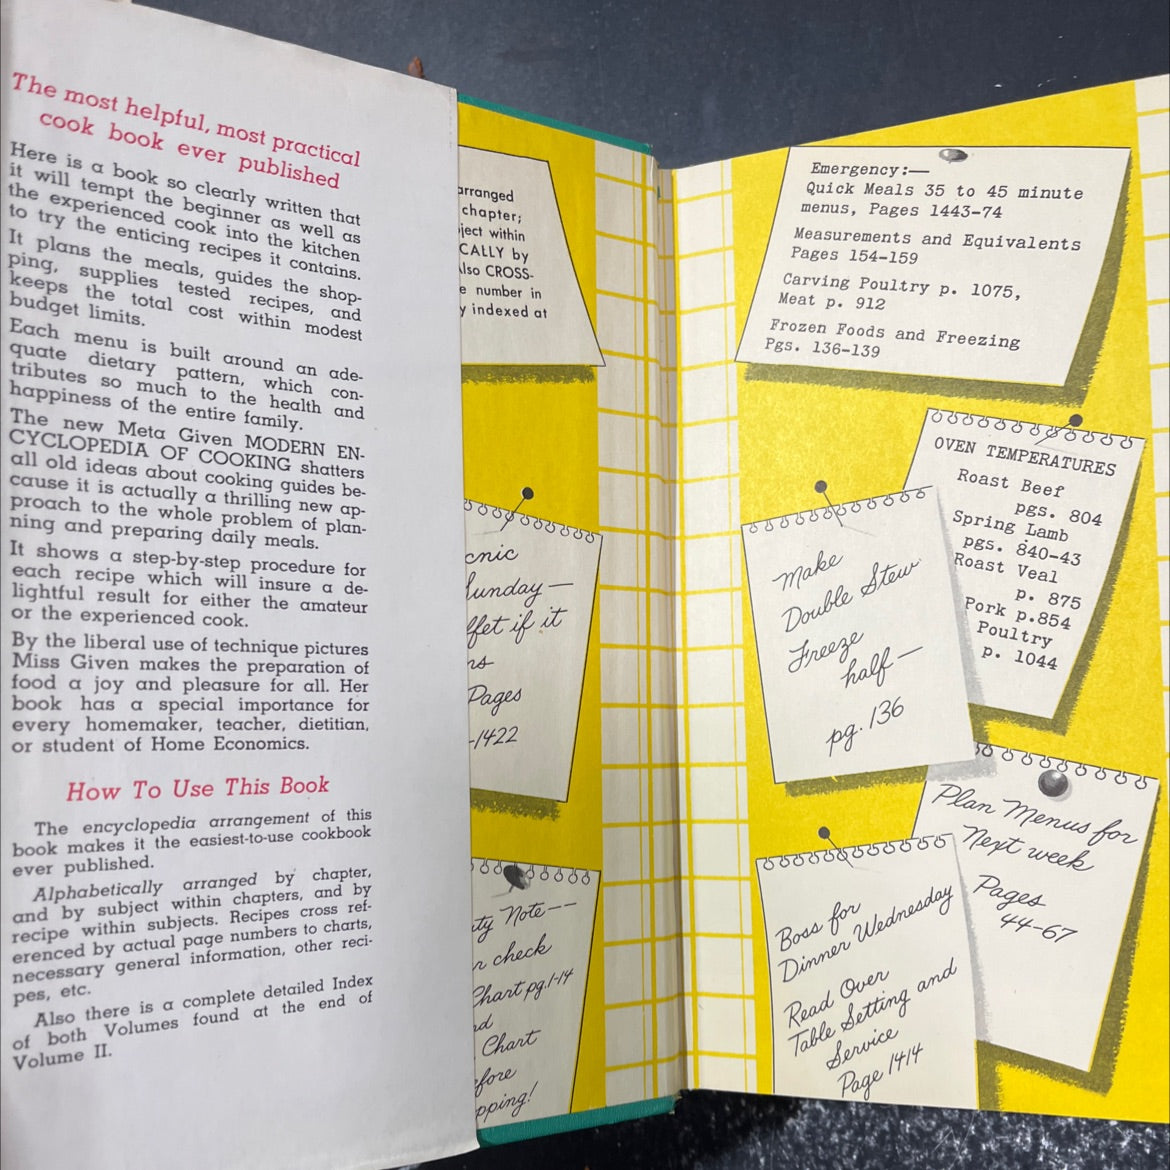 The most helpful, most practical
cook book ever published
Here is a book so clearly written that
it will tempt the beginner as well as
the experienced cook into the kitchen
to try the enticing recipes it contains.
It plans the meals, guides the shop-
ping, supplies tested recipes, and
keeps the total cost within modest
budget limits.
Each menu is built around an ade-
quate dietary pattern, which con-
tributes so much to the health and
happiness of the entire family.
The new Meta Given MODERN EN-
CYCLOPEDIA OF COOKING shatters
all old ideas about cooking guides be-
cause it is actually a thrilling new ap-
proach to the whole problem of plan-
ning and preparing daily meals.
It shows a step-by-step procedure for
each recipe which will insure a de-
lightful result for either the amateur
or the experienced cook.
By the liberal use of technique pictures
Miss Given makes the preparation of
food a joy and pleasure for all. Her
book has a special importance for
every homemaker, teacher, dietitian,
or student of Home Economics.
How To Use This Book
The encyclopedia arrangement of this
book makes it the easiest-to-use cookbook
ever published.
Alphabetically arranged by chapter,
and by subject within chapters, and by
recipe within subjects. Recipes cross ref-
erenced by actual page numbers to charts,
necessary general information, other reci-
pes, etc.
Also there is a complete detailed Index
of both Volumes found at the end of
Volume II.
arranged
chapter;
ject within
CALLY by
lso CROSS-
e number in
y indexed at
cnic
Sunday—
ffet if it
ns
Pages
-1422
ty Note--
r check
Chart pg.1-14
d
Chart
efore
pping!
Emergency:—
Quick Meals 35 to 45 minute
menus, Pages 1443-74
Measurements and Equivalents
Pages 154-159
Carving Poultry p. 1075,
Meat p. 912
Frozen Foods and Freezing
Pgs. 136-139
OVEN TEMPERATURES
Roast Beef
pgs. 804
Spring Lamb
pgs. 840-43
Roast Veal
p. 875
Pork p.854
Poultry
p. 1044
Make
Double Stew
Freeze
half—
pg. 136
Plan Menus for
Next week
Pages
44-67
Boss for
Dinner Wednesday
Read Over
Table Setting and
Service
Page 1414